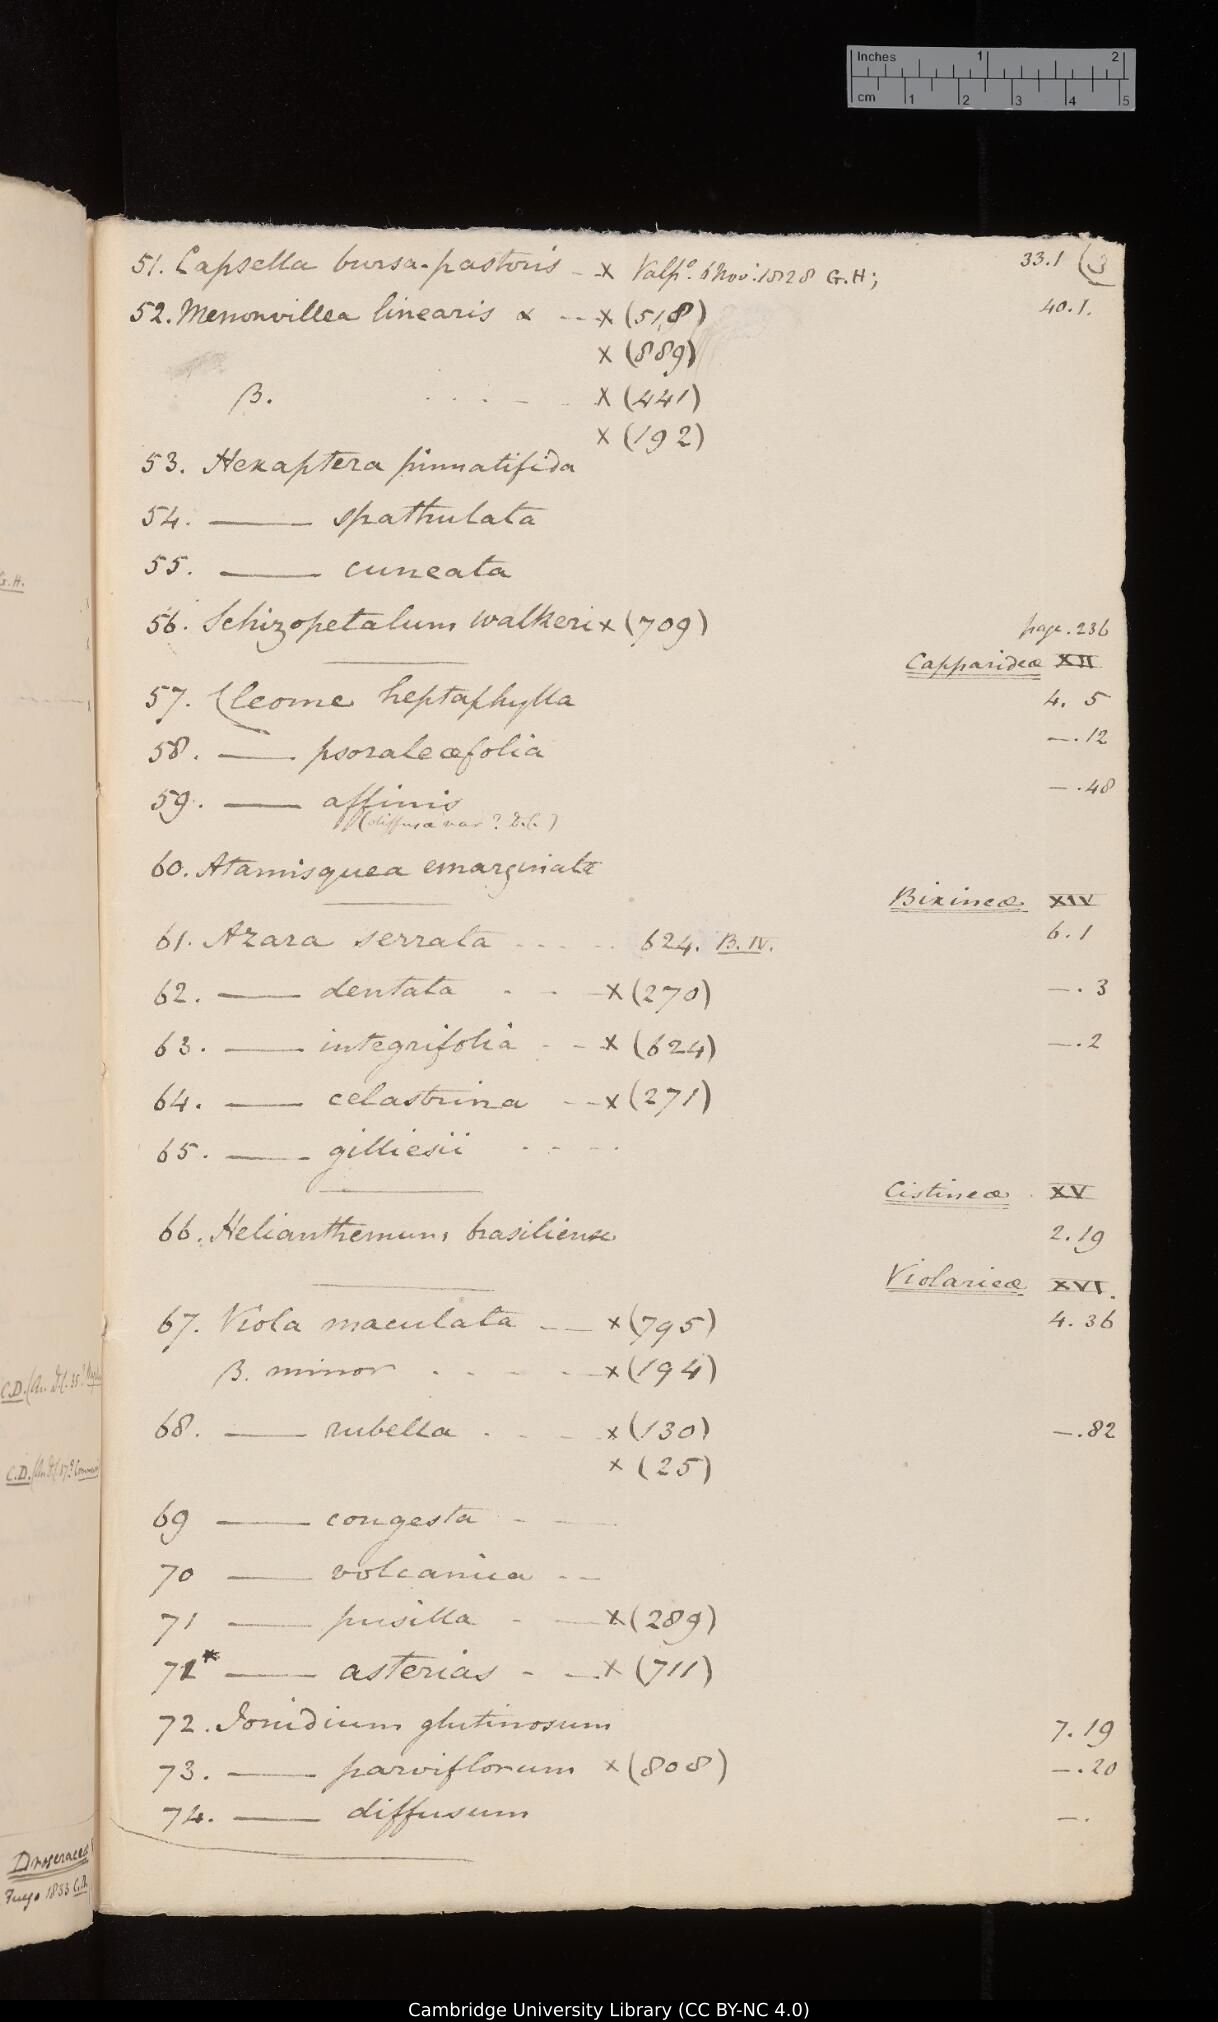 Inches 1 2
cm 1 2 3 4 5
51. Capsella bursa-pastoris - x Valpº. 6 Nov: 1828 G.H; 33.1 (3
52. Menonvillea linearis α -- x (518) 40.1.
x (889)
β. . . . - - x (441)
x (192)
53. Hexaptera pinnatifida
54. —— spathulata
55. —— cuneata
56. Schizopetalum walkeri x (709) page. 236
Capparideæ XII
57. Cleome heptaphylla 4. 5
58. —— psoraleæfolia —.12
59. —— affinis —.48
(diffusa var? D.C.)
60. Atamisquea emarginata
Bixineæ XIV
61. Azara serrata - - - - 624. B.IV. 6.1
62. —— dentata - - - x (270) —.3
63. —— integrifolia - - x (624) —.2
64. —— celastrina -- x (271)
65. —— gilliesii - - - -
Cistineæ XV
66. Helianthemum brasiliense 2.19
Violarieæ XVI.
67. Viola maculata -- x (795) 4.36
β. minor - - - - x (194)
68. —— rubella - - - x (130) —.82
x (25)
69 —— congesta - —
70 —— volcanica --
71 —— pusilla - — x (289)
71* —— asterias - — x (711)
72. Ionidium glutinosum 7.19
73. —— parviflorum x (808) —.20
74. —— diffusum —.
G.H.
C.D.
C.D.
Droseraceæ
Fuego 1833 C.D.
Cambridge University Library (CC BY-NC 4.0)